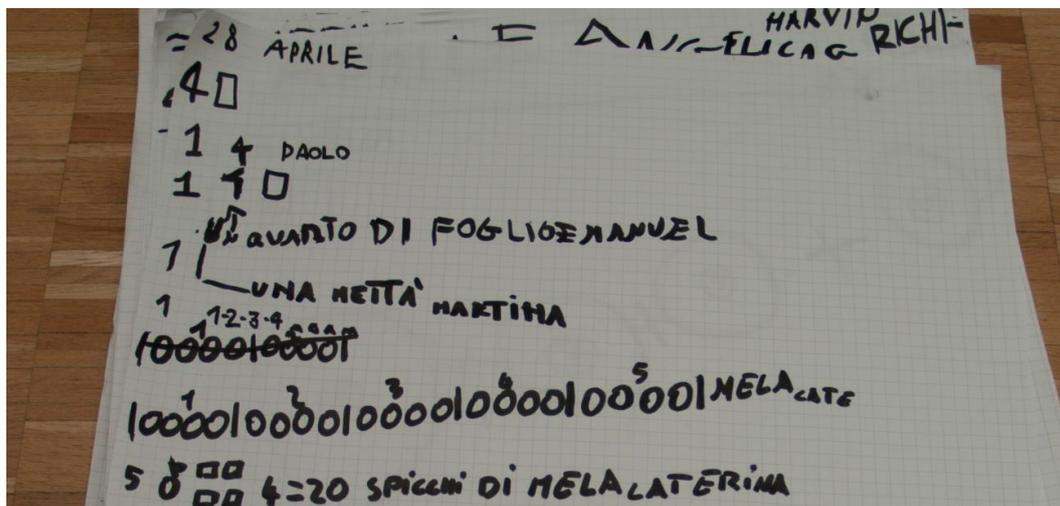 = 28 APRILE
HARVIN
= ANGELICA G RICHI-
.4 □
- 1 4 PAOLO
1 1 □
QUARTO DI FOGLIO EMANUEL
1
UNA METTÀ MARTINA
1
1 1-2-3-4
1 2 3 4 5
|0000|0000|0000|0000|0000| MELA CATE
5 4=20 SPICCHI DI MELA CATERINA